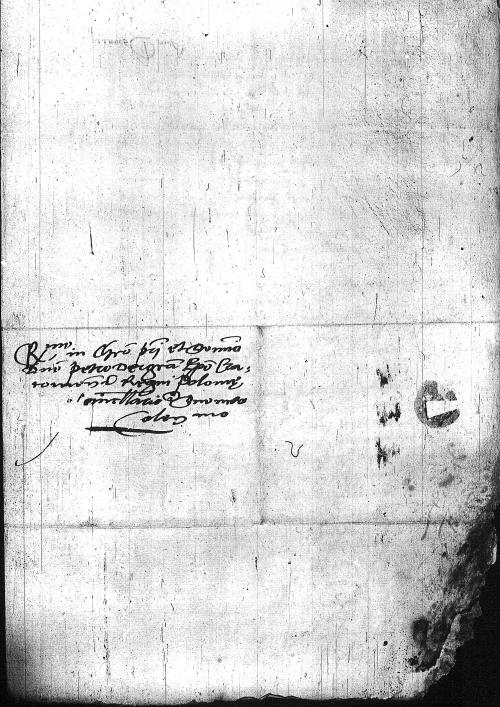 Rmo in Chro pri et Domino
Dno Petro Dei gra Epo Cra-
covien Regni Polonie
Cancellario Dno meo
colen mo